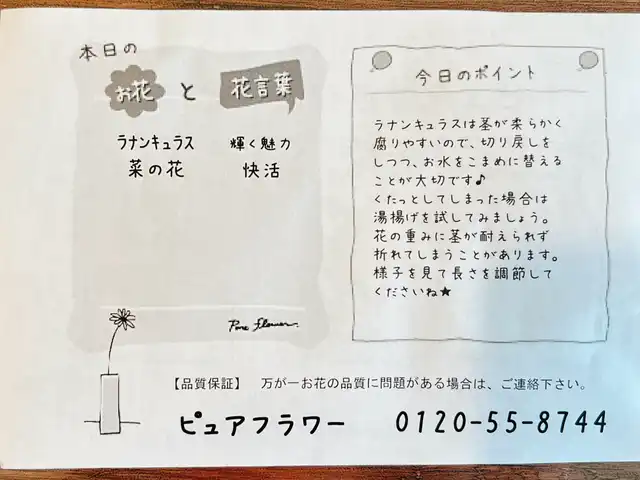 本日の
お花 と 花言葉
ラナンキュラス 輝く魅力
菜の花 快活
Pure Flower.
今日のポイント
ラナンキュラスは茎が柔らかく
腐りやすいので、切り戻しを
しつつ、お水をこまめに替える
ことが大切です♪
くたっとしてしまった場合は
湯揚げを試してみましょう。
花の重みに茎が耐えられず
折れてしまうことがあります。
様子を見て長さを調節して
くださいね★
【品質保証】 万が一お花の品質に問題がある場合は、ご連絡下さい。
ピュアフラワー 0120-55-8744